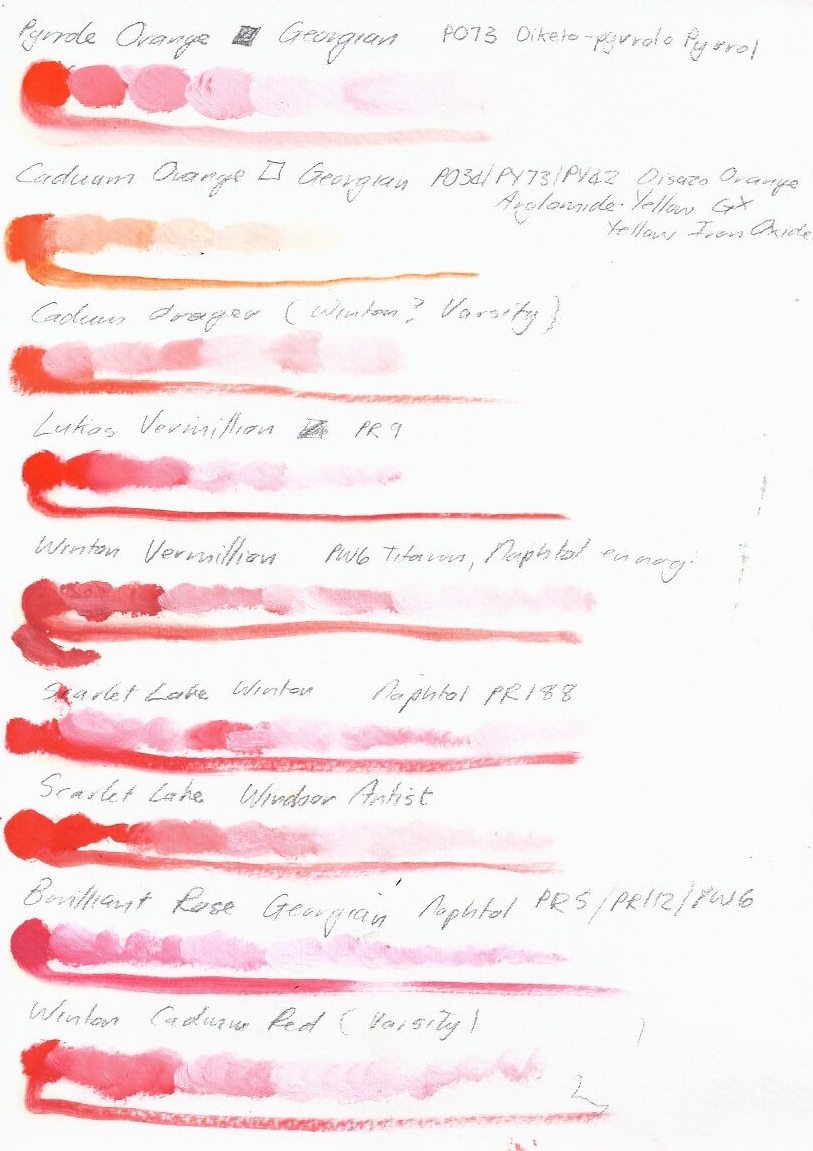 Pyrrole Orange Georgian PO73 Diketo-pyrrolo Pyrrol
Cadium Orange Georgian PO34/PY73/PY42 Disazo Orange
Arylamide Yellow GX
Yellow Iron Oxide
Cadium Orange (Winton? Varsity)
Lukas Vermillion PR9
Winton Vermillion PW6 Titanium, Naphtol
Scarlet Lake Winton Naphtol PR188
Scarlet Lake Windsor Artist
Brilliant Rose Georgian Naphtol PR5/PR112/PW6
Winton Cadium Red (Varsity)